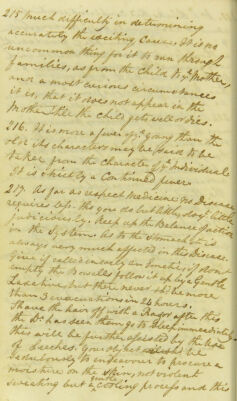 215 much difficulty in determining
accurately the exciting Cause. It is no
uncommon thing for it to run through
families, as from the Child to ye Mother,
and a most curious circumstance
it is, that it does not appear in the
Mother till the Child gets well or dies.
216. It is more a fever of ye young than the
old. Its characters may be said to be
taken from the Character of ye individual.
It is chiefly a Continued fever.
217. As far as respects Medicine no Disease
requires less. tho you do but little, do yt little
judiciously. Keep up the Balance of action
in the System. As to the Stomach it is
always very much affected in this Disease.
Give if called in early an Emetic, if it dont
empty the Bowels follow it up by a gentle
Laxative, but there never shd be more
than 3 evacuations in 24 hours.
Shave the hair off with a Razor after this
the Dr has seen them go to sleep immediately
this will be further assisted by the use
of Leeches. Your object be
sedulously to endeavour to procure a
moisture on the Skin, not violent
sweating but a gentle cooling process and this